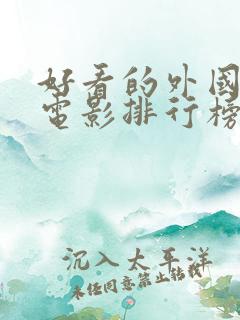 好看的外國
電影排行榜
沉入太平洋
未经同意禁止转载